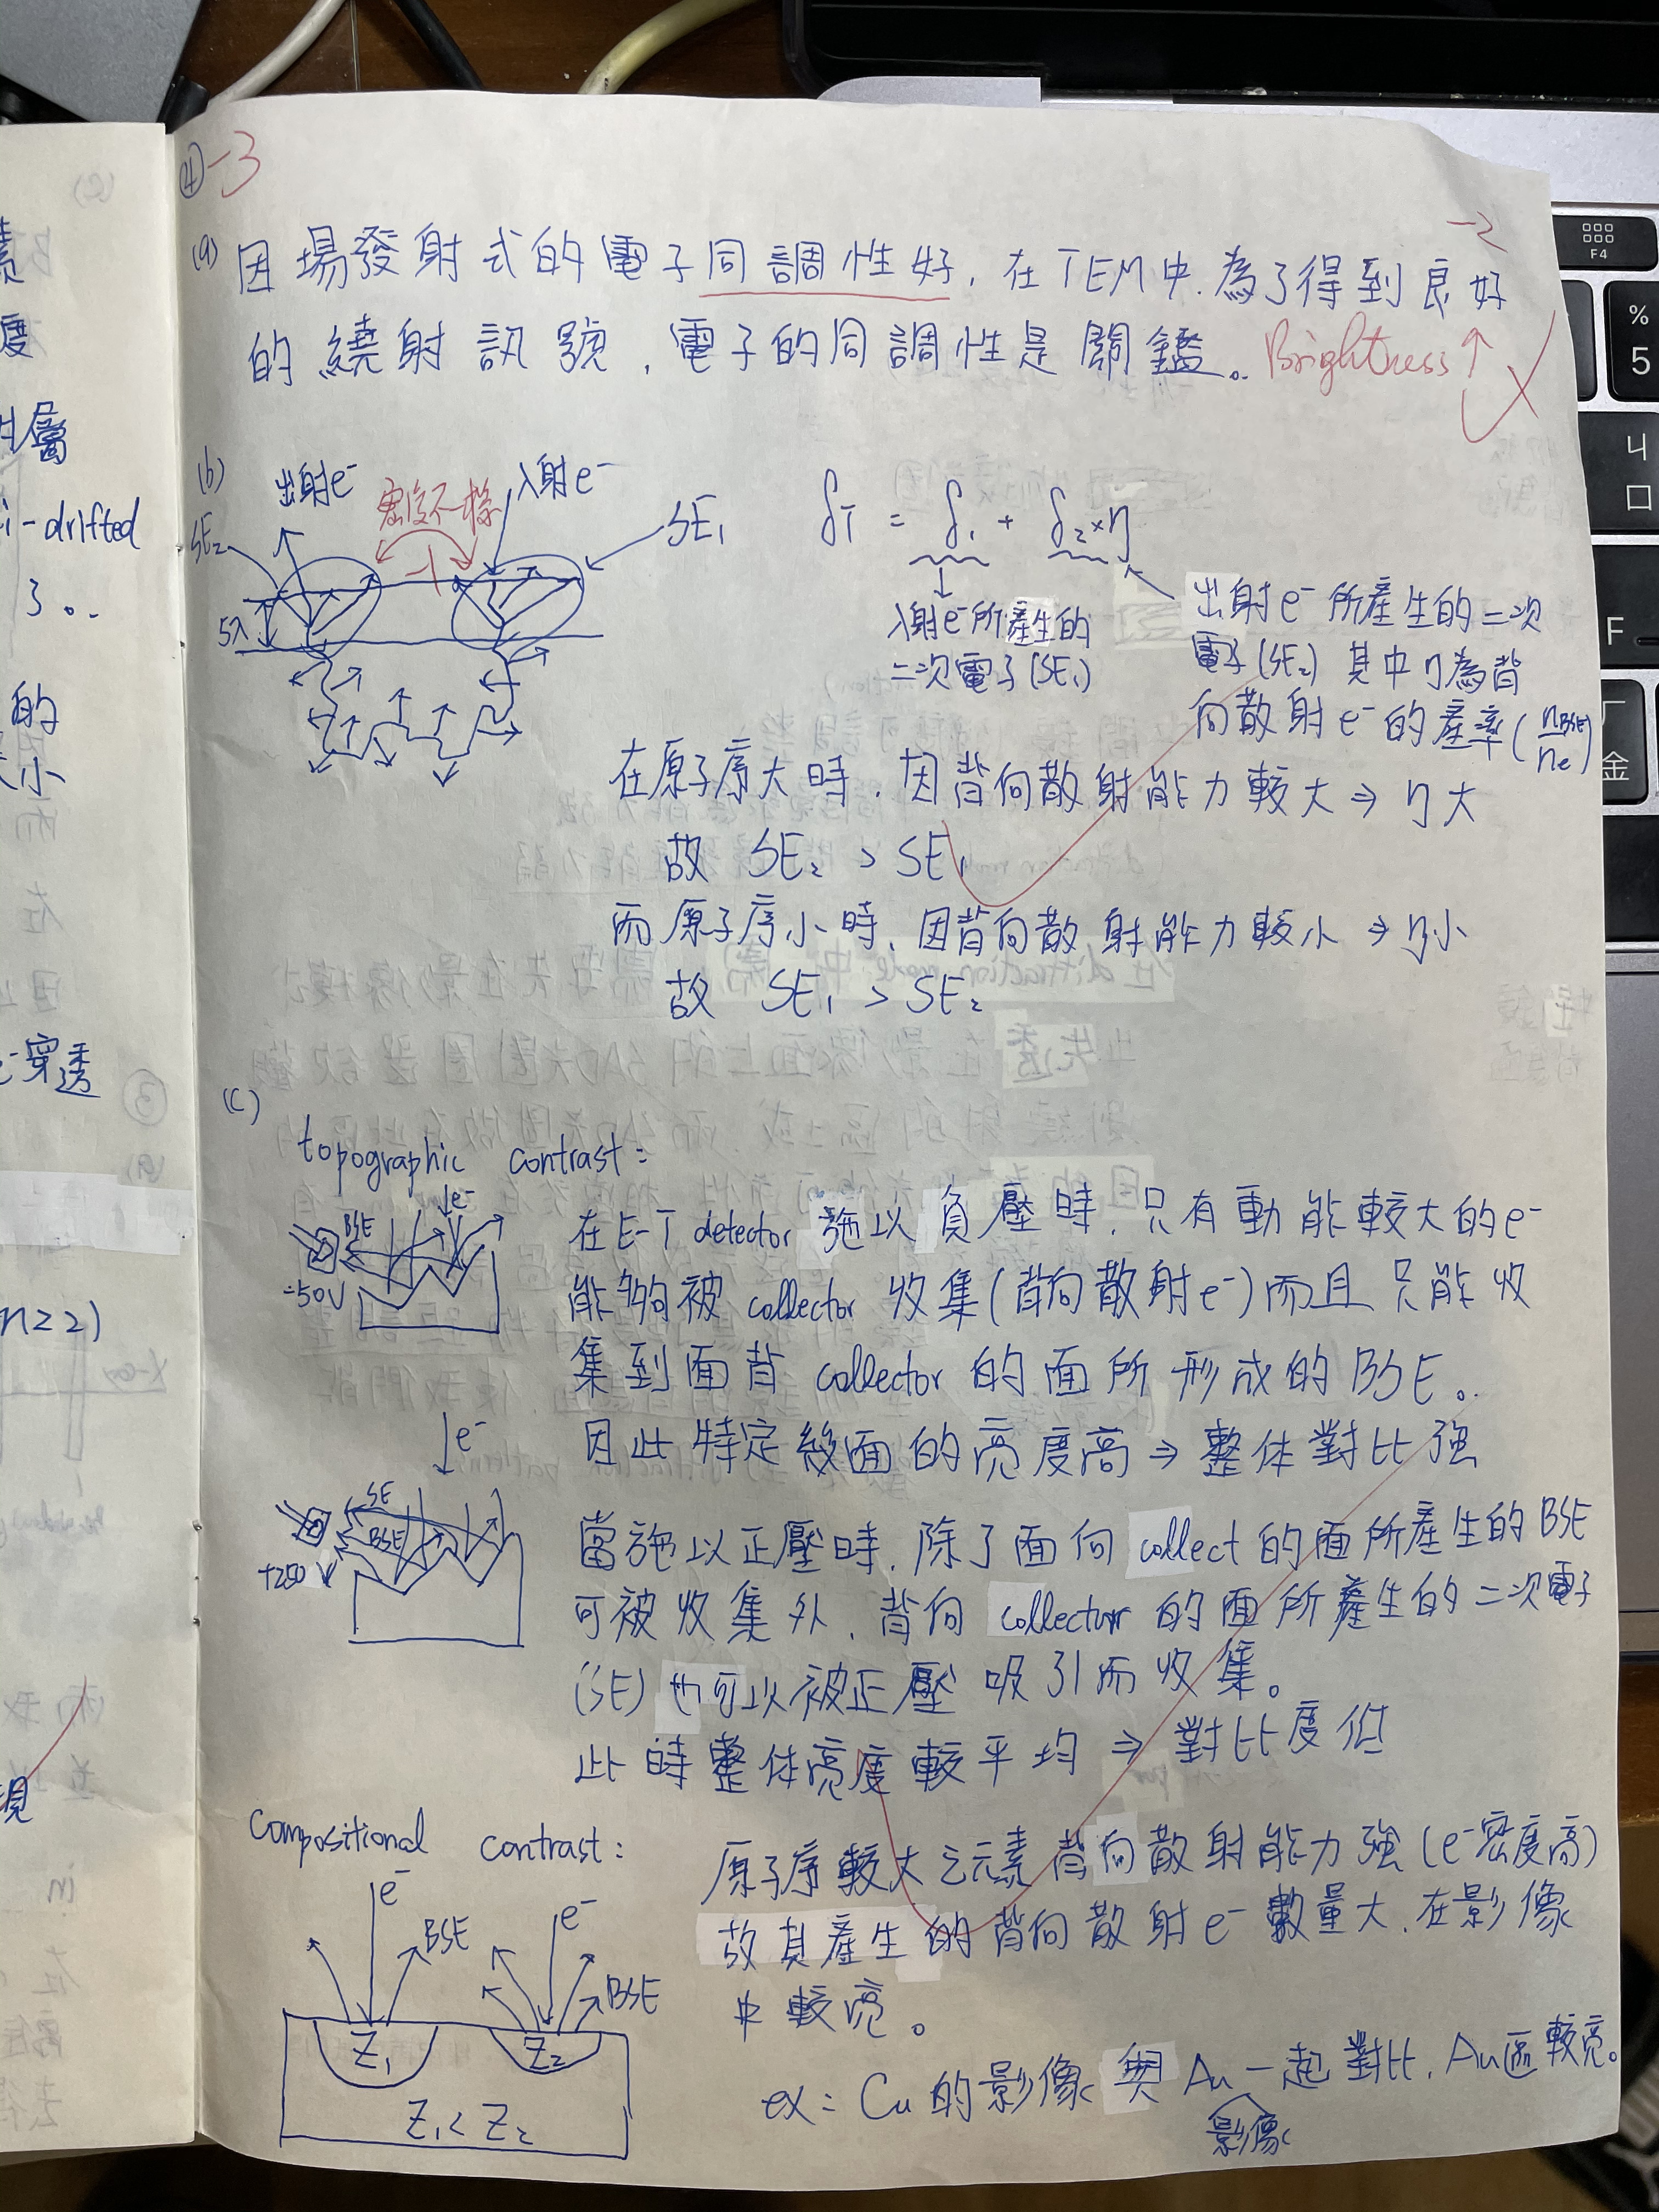 ④ -3
(a) 因場發射式的電子同調性好，在TEM中，為了得到良好 -2
的繞射訊號，電子的同調性是關鑑。 Brightness ↑
(b)
出射e⁻
入射e⁻
SE₂
SE₁
-1
5λ
δT = δ₁ + δ₂×η
入射e⁻所產生的
二次電子(SE₁)
出射e⁻所產生的二次
電子(SE₂) 其中η為背
向散射e⁻的產率(nBSE/ne)
在原子序大時，因背向散射能力較大⇒η大
故 SE₂ > SE₁
而原子序小時，因背向散射能力較小⇒η小
故 SE₁ > SE₂
(c)
topographic contrast:
e⁻
BSE
-50V
在E-T detector 施以負壓時，只有動能較大的e⁻
能夠被collector收集(背向散射e⁻)而且只能收
集到面背collector的面所形成的BSE。
因此特定幾面的亮度高⇒整体對比強
e⁻
SE
BSE
+250V
當施以正壓時，除了面向collect的面所產生的BSE
可被收集外，背向collector的面所產生的二次電子
(SE)也可以被正壓吸引而收集。
此時整体亮度較平均⇒對比度低
Compositional contrast:
e⁻
BSE
e⁻
BSE
Z₁
Z₂
Z₁ < Z₂
原子序較大之元素背向散射能力強(e⁻密度高)
故其產生的背向散射e⁻數量大，在影像
中較亮。
ex: Cu的影像與Au一起對比，Au區較亮。
影像
i-drifted
的
大小
穿透
n≥2)
F4
%
5
F
金